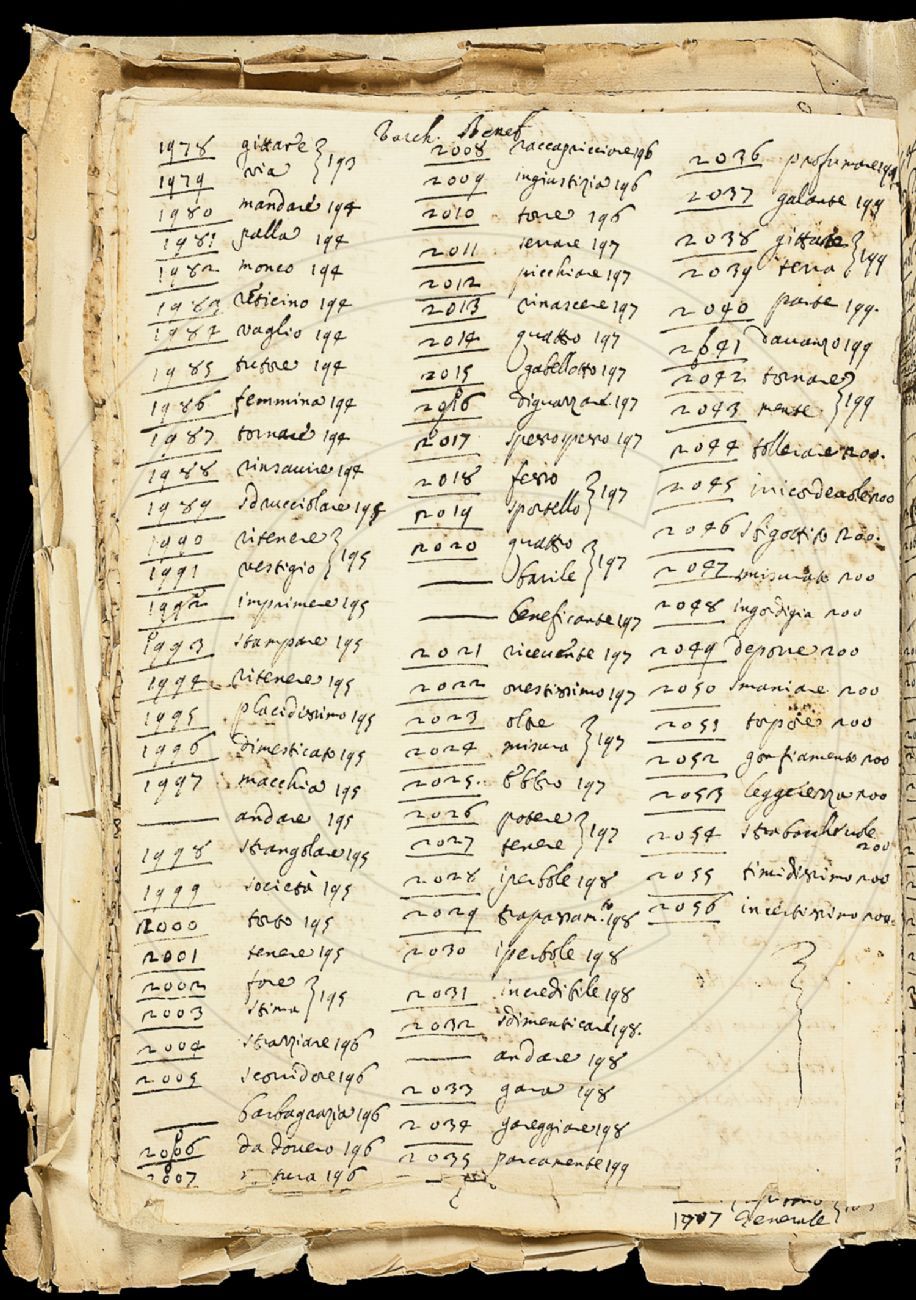 Varch. Benef.
1978 gittare } 193
1979 via
1980 mandare 194
1981 palla 194
1982 monco 194
1983 resticino 194
1984 vaglio 194
1985 tutore 194
1986 femmina 194
1987 tornare 194
1988 rinsavire 194
1989 sdrucciolare 195
1990 ritenere } 195
1991 vestigio
1992 imprimere 195
1993 stampare 195
1994 ritenere 195
1995 placidissimo 195
1996 dimesticato 195
1997 macchia 195
—— andare 195
1998 strangolare 195
1999 società 195
2000 torto 195
2001 tenere 195
2002 fore } 195
2003 stima
2004 straziare 196
2005 scorridore 196
—— barbagrazia 196
2006 da dovero 196
2007 196
2008 raccapricciare 196
2009 ingiustizia 196
2010 torre 196
2011 serrare 197
2012 picchiare 197
2013 rinascere 197
2014 quatto 197
2015 gabellotto 197
2016 diguazzare 197
2017 spesso spesso 197
2018 fesso } 197
2019 sportello
2020 quatto } 197
—— barile
—— beneficante 197
2021 ricevente 197
2022 onestissimo 197
2023 oltre } 197
2024 misura
2025 ebbro 197
2026 potere } 197
2027 tenere
2028 iperbole 198
2029 trapassam.to 198
2030 iperbole 198
2031 incredibile 198
2032 sdimenticare 198.
—— andare 198
2033 gara 198
2034 gareggiare 198
2035 parcamente 199
2036 profumare 199
2037 galante 199
2038 gittare } 199
2039 terra
2040 parte 199.
2041 davanzo 199
2042 tornare } 199
2043 mente
2044 tollerare 200.
2045 inricordevole 200
2046 sbigottito 200.
2047 misurato 200
2048 ingordigia 200
2049 deporre 200
2050 smaniare 200
2051 torpore 200
2052 gonfiamento 200
2053 leggerezza 200
2054 strabocchevole
200
2055 timidissimo 200
2056 incertissimo 200.
1707 Generale